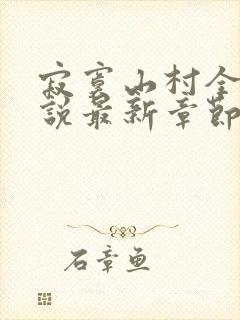 寂寞山村全
說最新章節
石章鱼